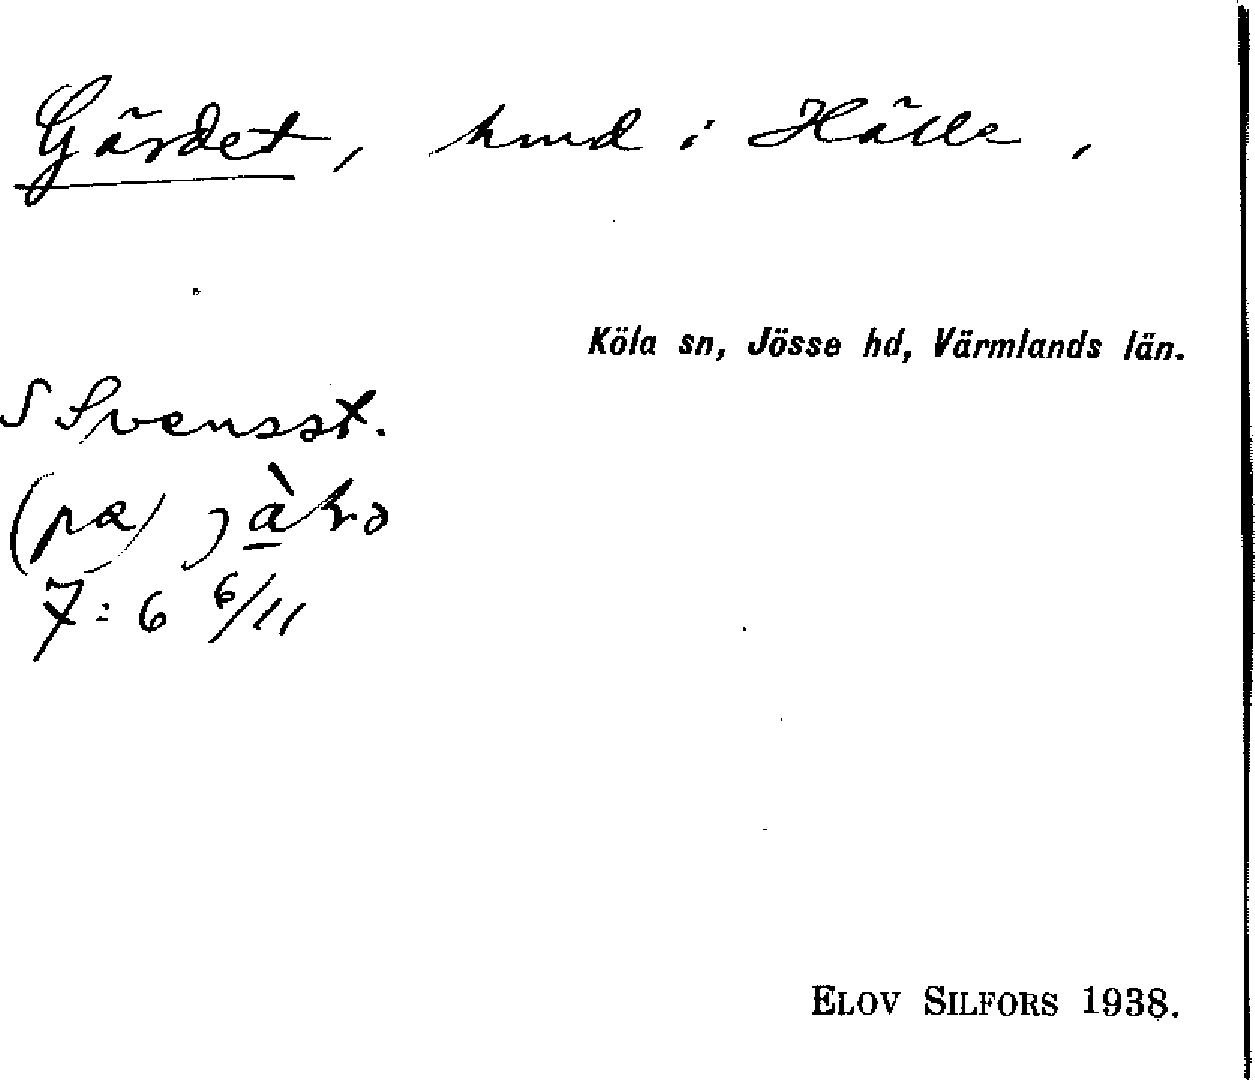 Gärdet, hmd i Hälle,
Köla sn, Jösse hd, Värmlands län.
S Svensst.
(pa)
7:6 6/11
ELOV SILFORS 1938.